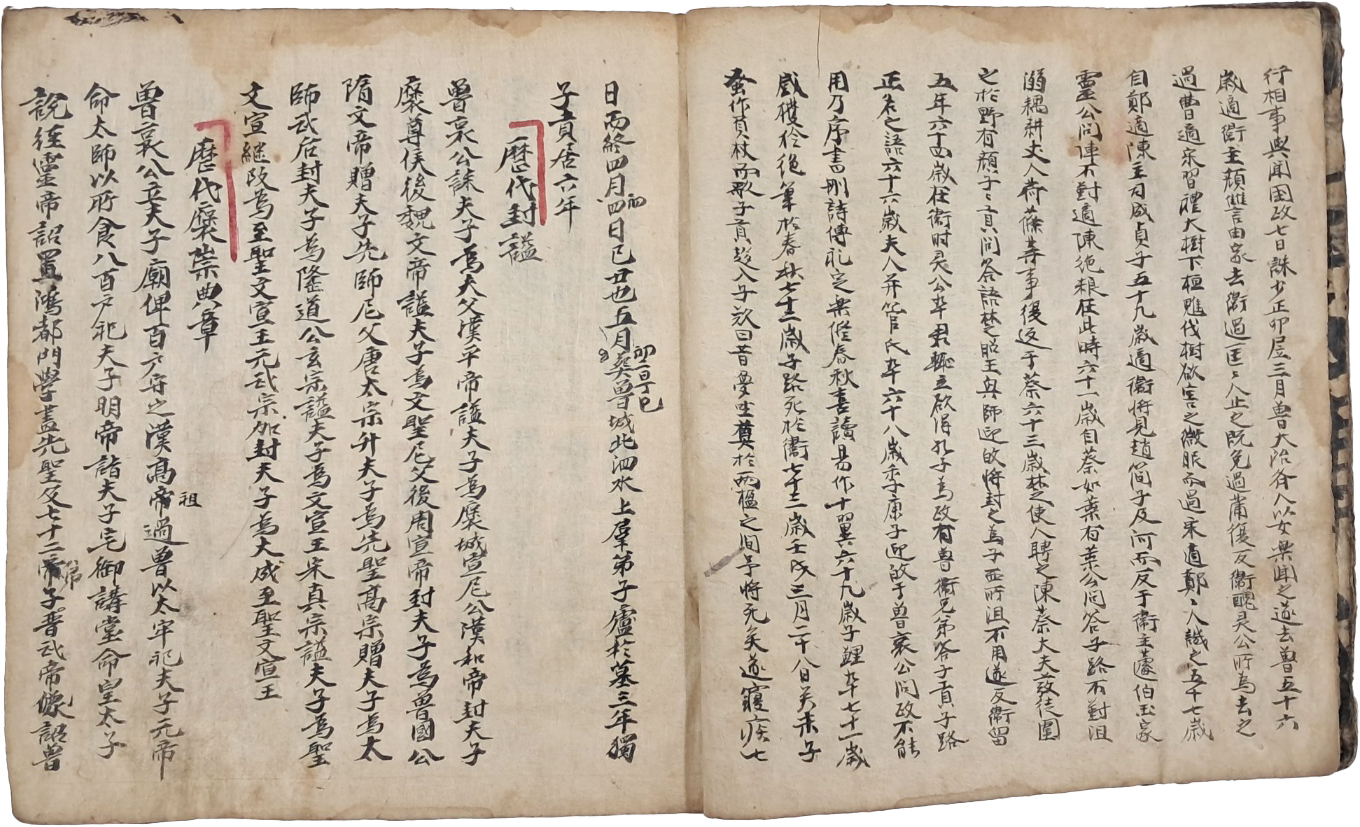 行相事與聞國政七日誅少正卯居三月魯大治齊人以女樂聞之遂去魯五十六
歲適衛主顏讎言由家去衛過匡匡人止之旣免過蒲復反衛醜灵公所爲去之
過曹適宋習禮大樹下桓魋伐樹欲害之微服而過宋適鄭鄭人譏之五十七歲
自鄭適陳主司成貞子五十九歲適衛將見趙簡子及河而反于衛主蘧伯玉家
靈公問陣不對適陳絶粮在此時六十一歲自蔡如葉有葉公問答子路不對沮
溺耦耕丈人荷蓧等事復返于蔡六十三歲楚使人聘之陳蔡大夫發徒圍
之於野有顏子子貢問答語楚昭王興師迎欲將封之爲子西所沮不用遂反衛留
五年六十四歲在衛时灵公卒君輒立欲得孔子爲政有魯衛兄弟答子貢子路
正名之語六十六歲夫人幷官氏卒六十八歲季康子迎啟于魯哀公問政不能
用乃序書刪詩傳礼定樂修春秋喜讀易作十翼六十九歲子鯉卒七十一歲
感獲獜絶筆於春秋七十二歲子路死於衛七十三歲壬戌三月二十八日癸未子
蚤作負杖而歌子貢趍入子歎曰昔夢坐奠於兩楹之间予將死矣遂寢疾七
日而終四月四日己丑也五月葬魯城北泗水上羣弟子廬於墓三年獨
子貢居六年
歷代封謚
魯哀公誄夫子爲夫父漢平帝謚夫子爲褒城宣尼公漢和帝封夫子
褒尊侯後魏文帝謚夫子爲文聖尼父後周宣帝封夫子爲魯國公
隋文帝贈夫子先師尼父唐太宗升夫子爲先聖高宗贈夫子爲太
師武后封夫子爲隆道公玄宗謚夫子爲文宣王宋真宗謚夫子爲聖
文宣継改爲至聖文宣王元武宗加封夫子爲大成至聖文宣王
歷代褒崇典章
魯哀公立夫子廟俾百六户守之漢高祖帝過魯以太牢祀夫子元帝
命太師以所食八百户祀夫子明帝詣夫子宅御講堂命皇太子
說經靈帝詔置鴻都門學畫先聖及七十二弟子晉武帝修詔魯